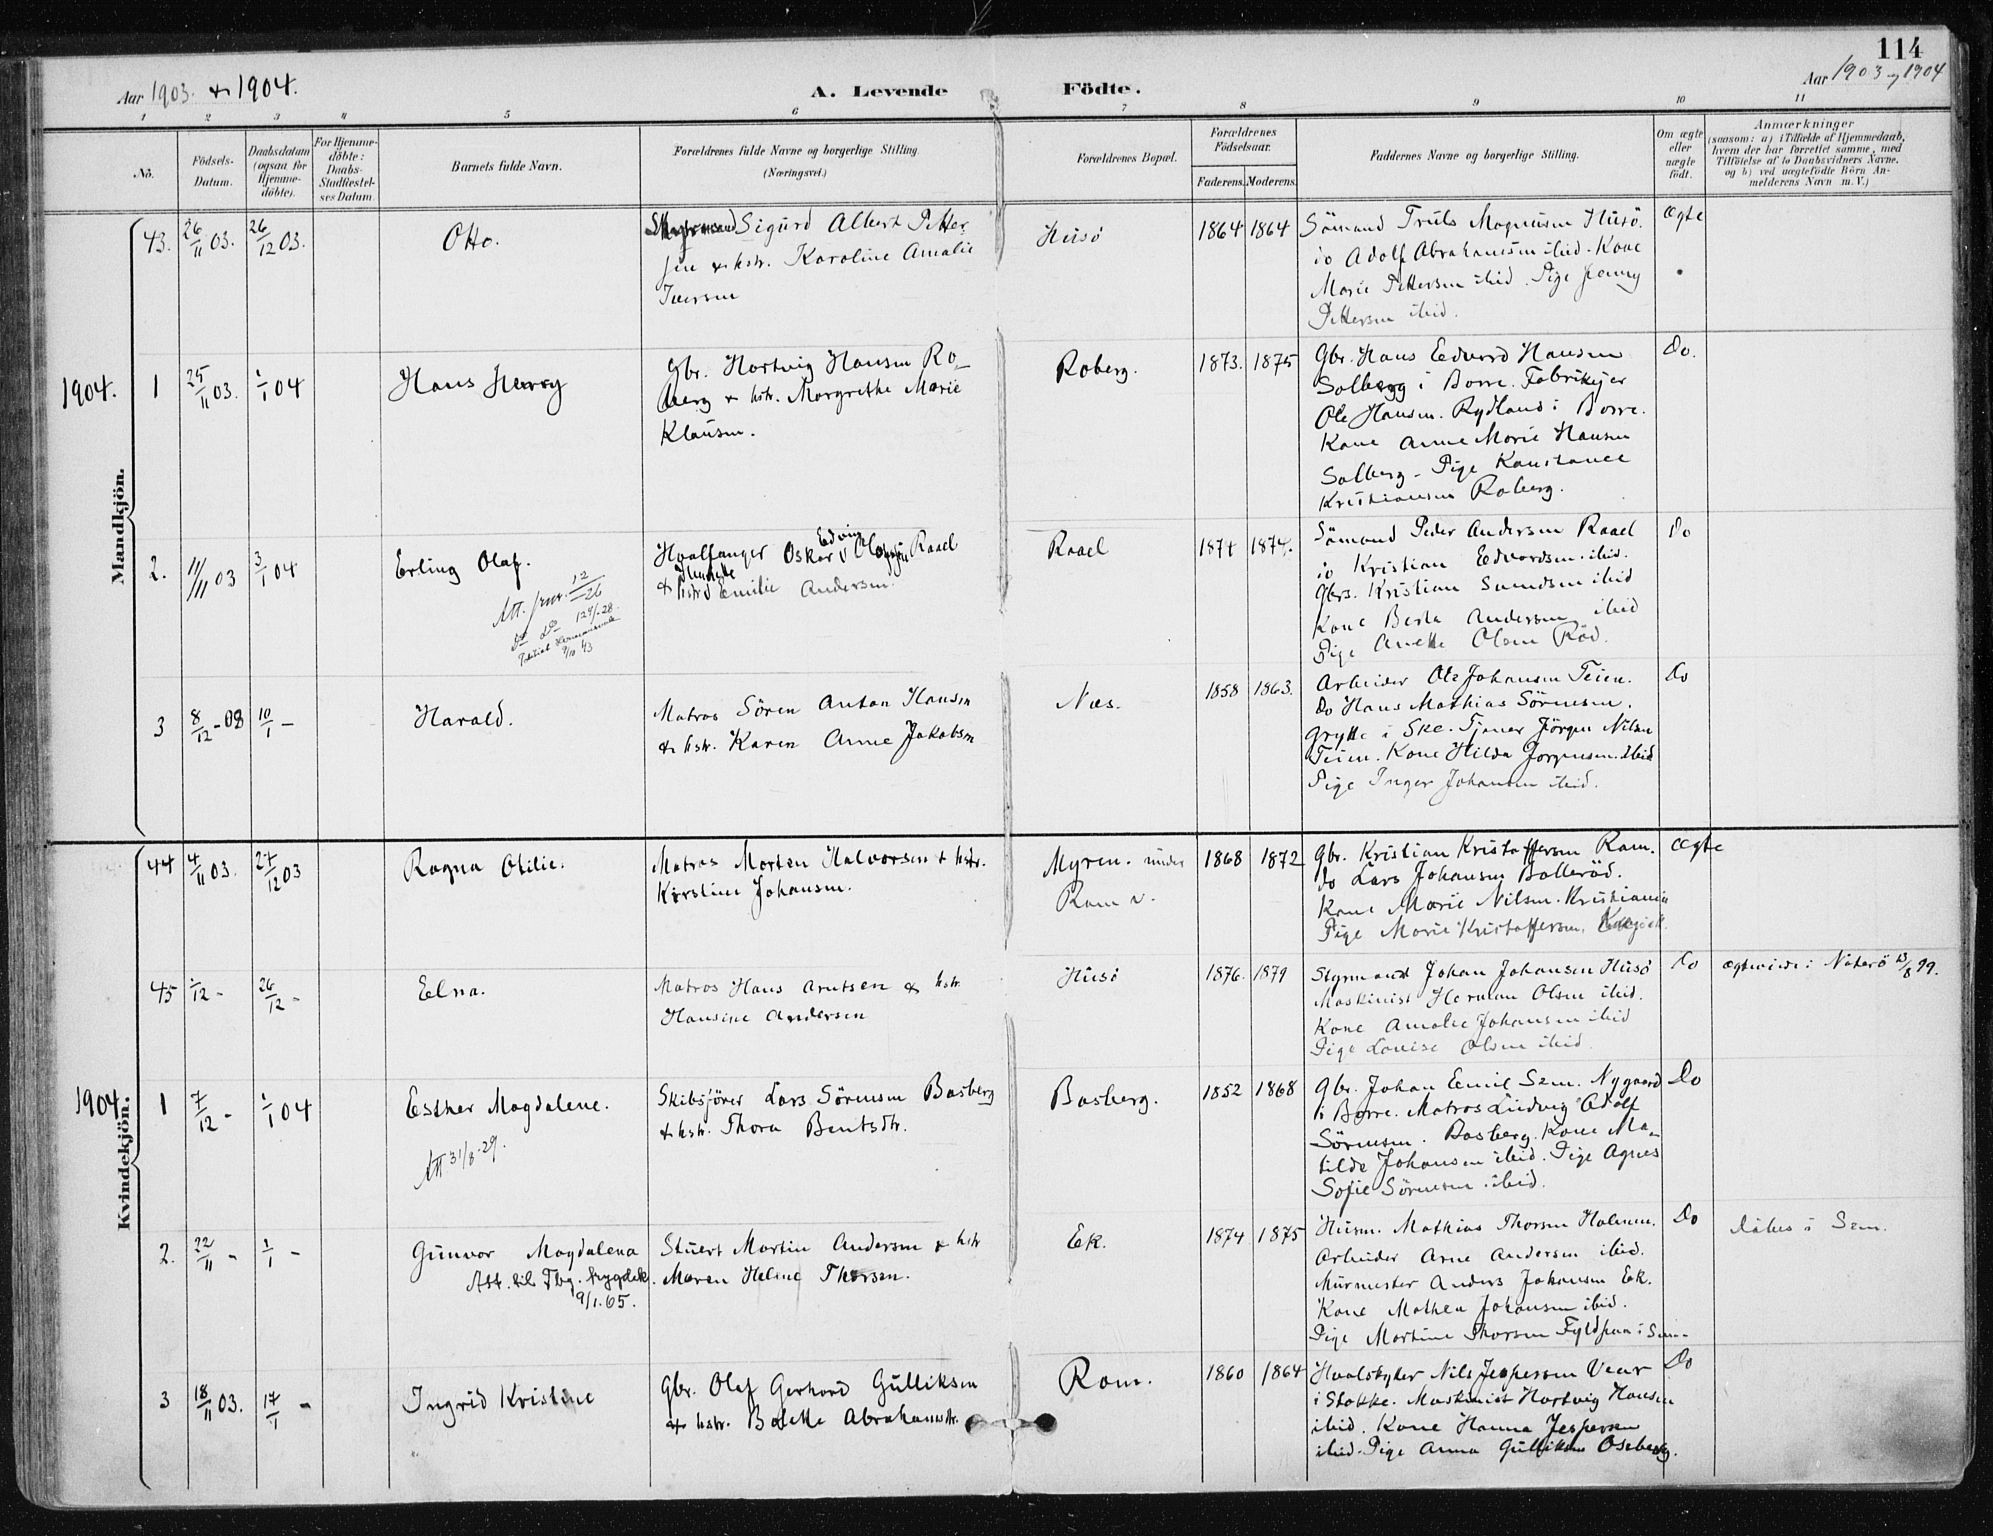 114
Aar 1903 & 1904.
A. Levende Födte.
Aar 1903 og 1904
1 2 3 4 5 6 7 8 9 10 11
No.
Födsels-
Datum.
Daabsdatum
(ogsaa for
Hjemme-
döbte).
For Hjemme-
döbte:
Daabs-
Stadfæstel-
ses Datum.
Barnets fulde Navn.
Forældrenes fulde Navne og borgerlige Stilling.
(Næringsvei.)
Forældrenes Bopæl.
Forældrenes
Födselsaar.
Faderens. Moderens.
Faddernes Navne og borgerlige Stilling.
Om ægte
eller
uægte
födt.
Anmærkninger
(saasom: a) i Tilfælde af Hjemmedaab,
hvem der har forrettet samme, med
Tilföielse af to Daabsvidners Navne.
og b) ved uægtefödte Börn An-
melderens Navn m. V.)
Mandkjön.
43. 26/11 03. 26/12 03. Otto.
Sigurd Albert Petter
sen & hstr. Karoline Amalie
Iversen
Husö
1864 1864
Sömand Truls Magnusen Husö.
do Adolf Abrahamsen ibid. Kone
Marie Pettersen ibid. Pige Jenny
Pettersen ibid.
Ægte
1904.
1 25/11 03. 1/1 04 Hans Henry
Gbr. Hartvig Hansen Ro-
berg & hstr. Margrethe Marie
Klausen.
Roberg.
1873. 1875
Gbr. Hans Edvard Hansen
Solberg i Borre. Fabrikeier
Ole Hansen. Rydland i Borre.
Kone Anne Marie Hansen
Solberg. Pige Konstance
Kristiansen Roberg.
Do.
2. 11/11 03 3/1 04 Erling Olaf.
Att. 1-2/26
Do Do 12 4/-28.
9/10 43
Hvalfanger Oskar Edvin Raael
& hstr Emilie Andersen.
Raael
1871 1874.
Sömand Peder Andersen Raael
do Kristian Edvardsen. ibid.
Gbrs. Kristian ibid
Kone Berta Andersen ibid
Pige Anette Olsen Röd.
Do
3 8/12 - 03 10/1 - Harald.
Matros Sören Anton Hansen
& hstr. Karen Anne Jakobsen
Næs.
1858 1863.
Arbeider Ole Johansen Teien.
Do Hans Mathias Sörensen.
Grytte i Ske. Tjener Jörgen Nilsen
Teien. Kone Hilda Jorgensen. ibid
Pige Inger Johansen ibid.
Do
Kvindekjön.
44 4/11 03. 27/12 03 Ragna Otilie.
Matros Morten Halvorsen & hstr.
Kirstine Johansen.
Myren. under
Ram v.
1868 1872
Gbr. Kristian Kristoffersen Ram.
do Lars Johansen Bolleröd.
Kone Marie Nilsen. Kristiania
Pige Marie Kristoffersen.
Ægte
45 1/12 - 26/12 - Elna.
Matros Hans Arntsen & hstr.
Hansine Andersen
Husö
1876. 1879
Styrmand Johan Johansen Husö
Maskinist Herman Olsen ibid.
Kone Amalie Johansen ibid
Pige Lovise Olsen ibid
Do
ægteviede i Nöterö 13/8 99.
1904.
1 7/12 - 1/1 04 Esther Magdalene.
Att 31/8-29.
Skibsförer Lars Sörensen Basberg
& hstr. Thora Bentsdtr.
Basberg.
1852 1868
Gbr. Johan Emil Sem. Nygaard
i Borre. Matros Ludvig Adolf
Sörensen. Basberg. Kone Ma-
tilde Johansen ibid. Pige Agnes
Sofie Sörensen. ibid.
Do
2. 22/11 - 1/1 - Gunvor Magdalena
Att. til Tbg. trygdek.
9/1.65.
Stuert Martin Andersen & hstr
Maren Heline Thorsen.
Ek.
1874 1875
Husm. Mathias Thorsen Holmen.
Arbeider Arne Andersen ibid.
Murmester Anders Johansen Ek.
Kone Mathea Johansen ibid.
Pige Martine Thorsen Fyldpaa i Sem.
Do
Döbes i Sem.
3 18/11 03. 17/1 - Ingrid Kristine
Gbr. Olaf Gerhard Gulliksen
& hstr. Bolette Abrahamsdtr.
Rom.
1860 1864
Hvalskytter Nils Jespersen Vear
i Stokke. Maskinist Hartvig Hansen
ibid. Kone Hanna Jespersen
ibid. Pige Anna Gulliksen Oseberg.
Do